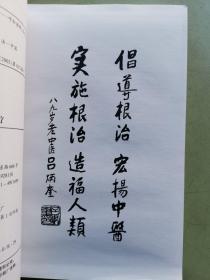 倡導根治 宏揚中醫
実施根治 造福人類
八九岁老中医吕炳奎